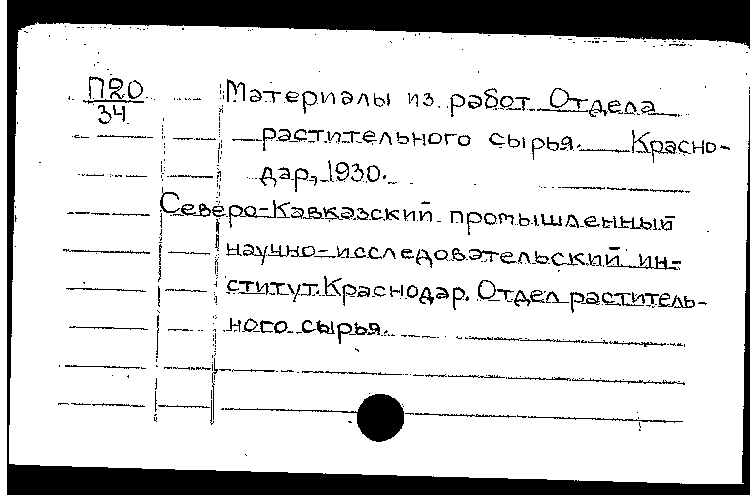 П20
34
Материалы из работ Отдела
растительного сырья. Красно-
дар, 1930.
Северо-Кавказский промышленный
научно-исследовательский ин-
ститут. Краснодар. Отдел раститель-
ного сырья.